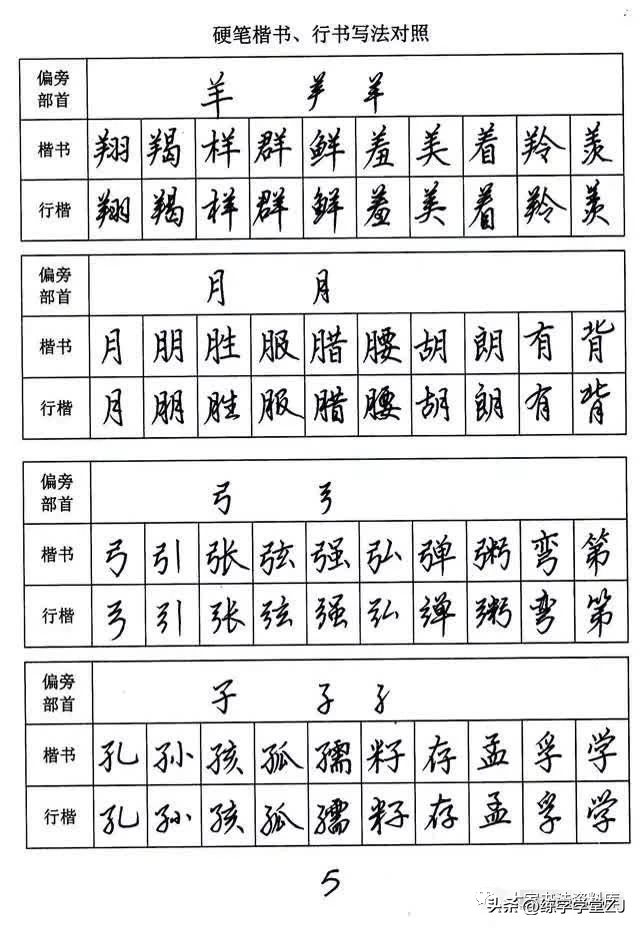 硬笔楷书、行书写法对照
偏旁部首 羊 羊 羊
楷书 翔 羯 样 群 鲜 羞 美 着 羚 羡
行楷 翔 羯 样 群 鲜 羞 美 着 羚 羡
偏旁部首 月 月
楷书 月 朋 胜 服 腊 腰 胡 朗 有 背
行楷 月 朋 胜 服 腊 腰 胡 朗 有 背
偏旁部首 弓 弓
楷书 弓 引 张 弦 强 弘 弹 粥 弯 第
行楷 弓 引 张 弦 强 弘 弹 粥 弯 第
偏旁部首 子 子 子
楷书 孔 孙 孩 孤 孺 籽 存 孟 孚 学
行楷 孔 孙 孩 孤 孺 籽 存 孟 孚 学
5
头条@练字学堂ZJ